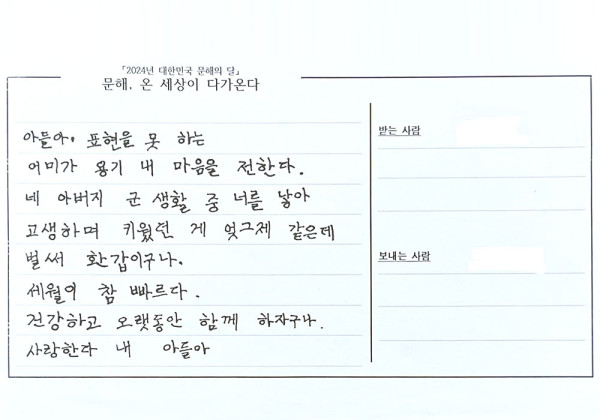 「2024년 대한민국 문해의 달」
문해, 온 세상이 다가온다
아들아. 표현을 못 하는
어미가 용기 내 마음을 전한다.
네 아버지 군 생활 중 너를 낳아
고생하며 키웠던 게 엊그제 같은데
벌써 환갑이구나.
세월이 참 빠르다.
건강하고 오랫동안 함께 하자구나.
사랑한다 내 아들아
받는 사람
보내는 사람